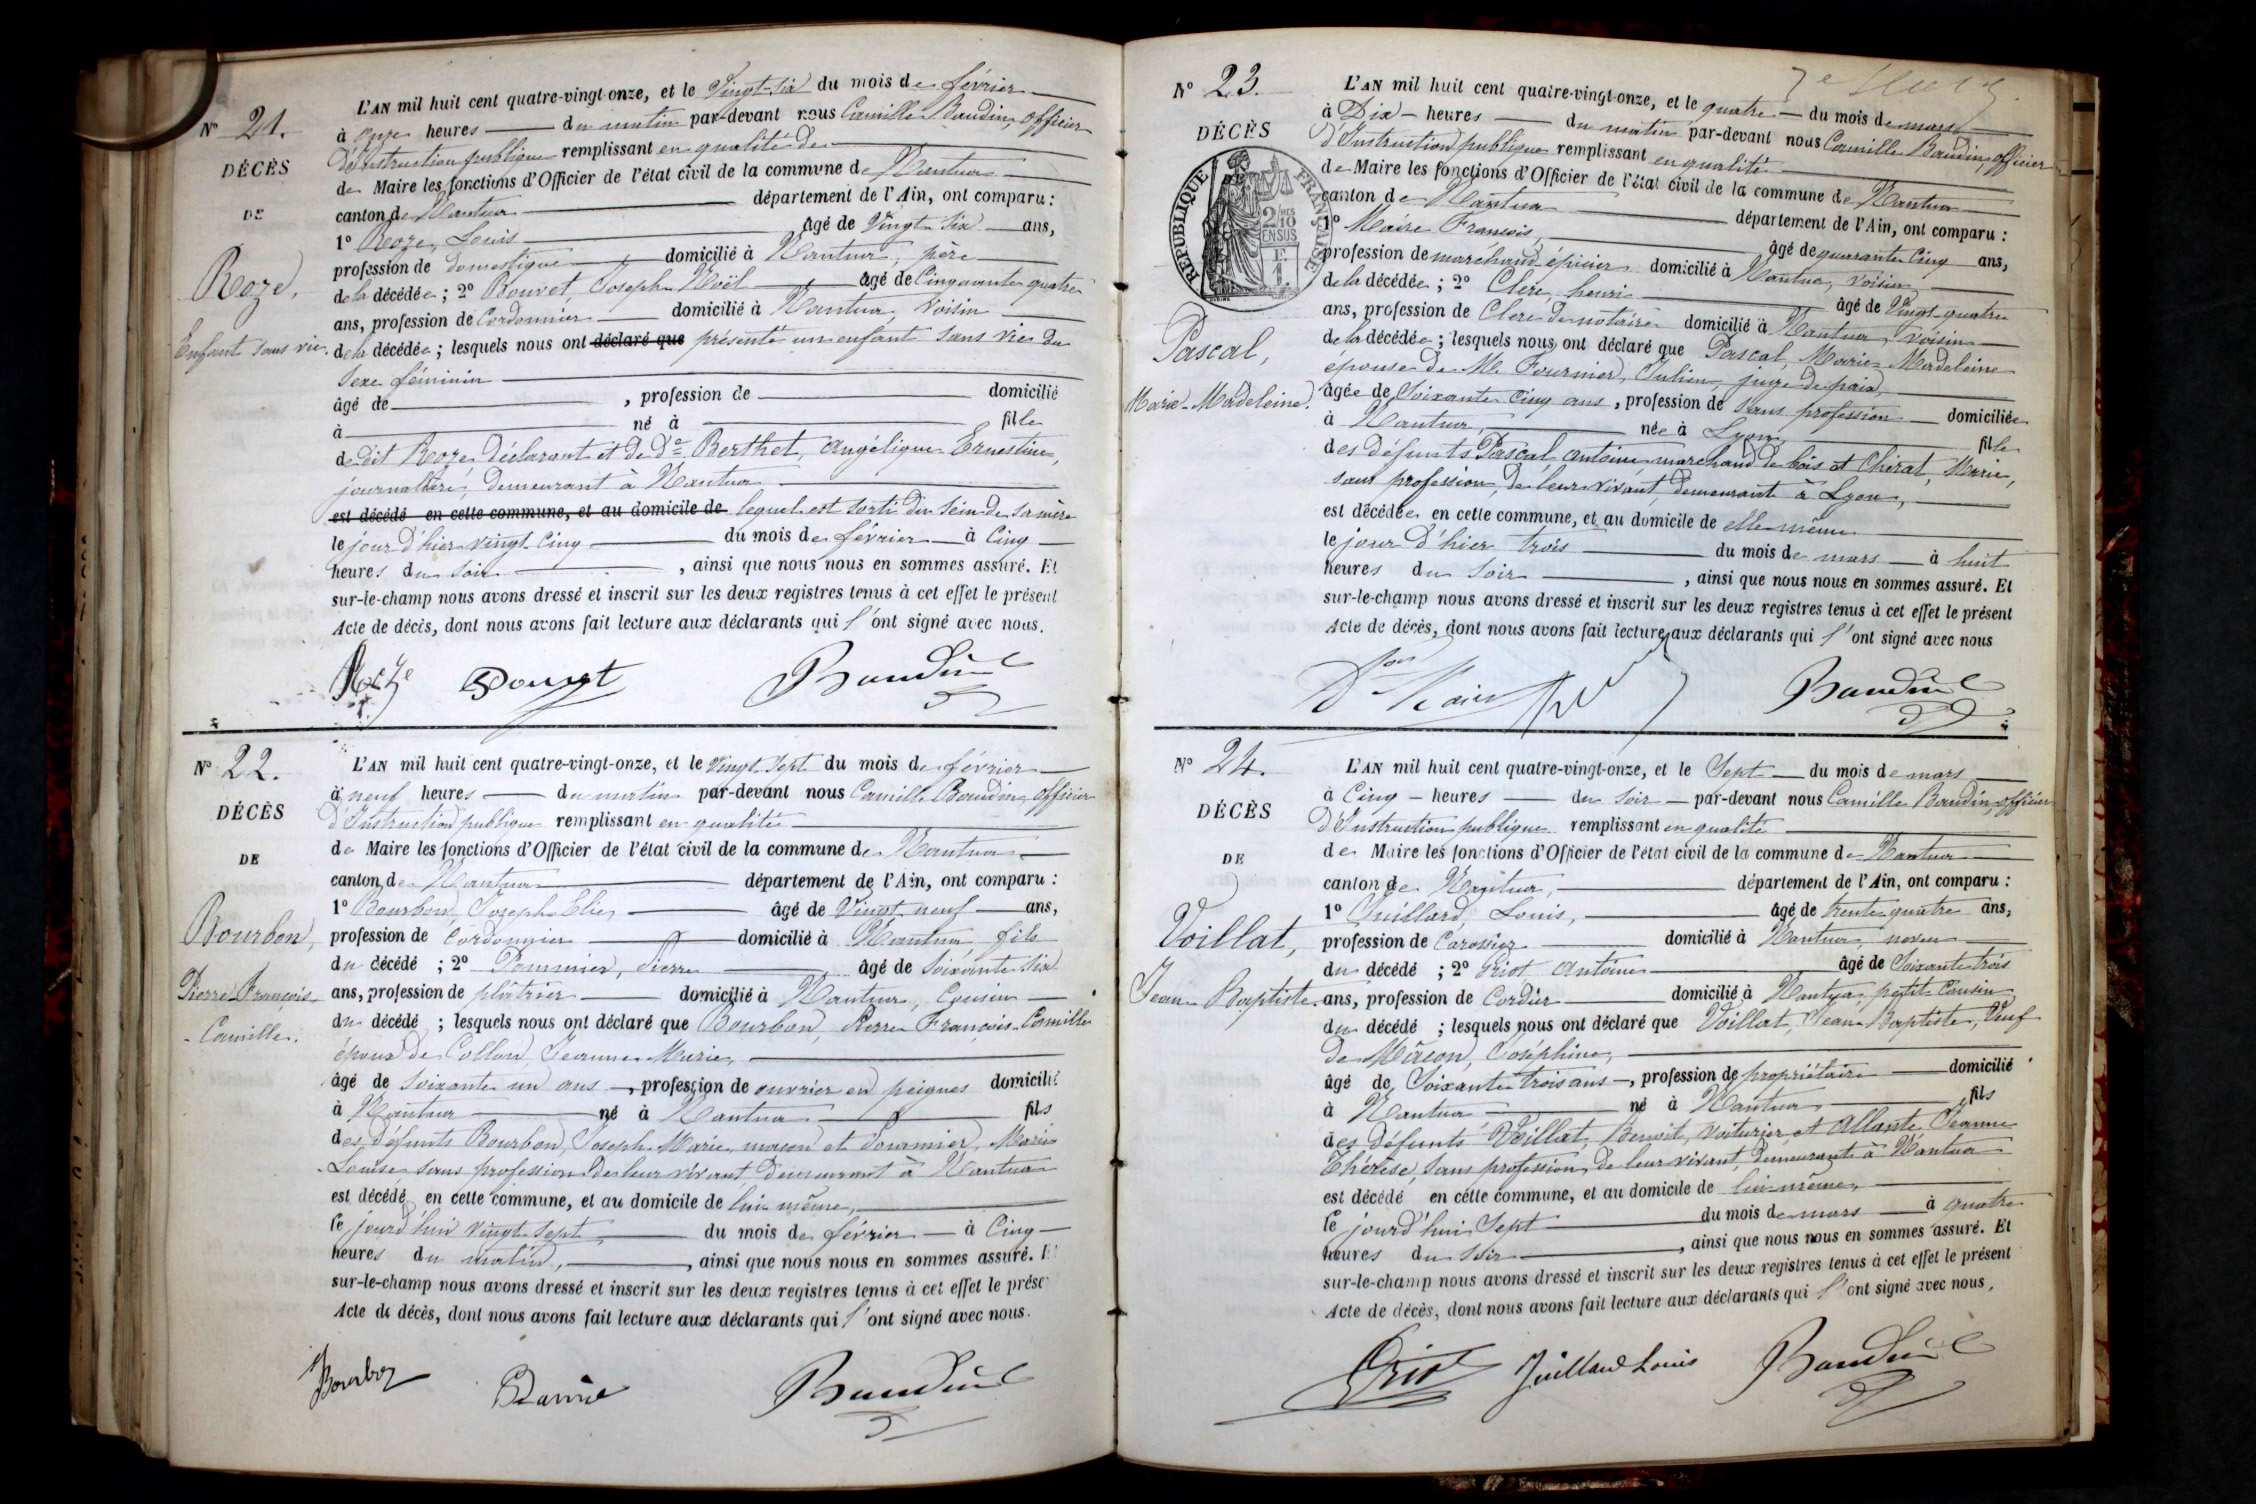 N° 21.
DÉCÈS
DE
Roze,
Enfant sans vie.
L'AN mil huit cent quatre-vingt-onze, et le Vingt-six du mois de février
à onze heures du matin par-devant nous Camille Baudin, officier
d'Instruction publique remplissant en qualité de
de Maire les fonctions d'Officier de l'état civil de la commune de Nantua
canton de Nantua département de l'Ain, ont comparu :
1° Roze, Louis âgé de Vingt six ans,
profession de domestique domicilié à Nantua, père
de la décédée ; 2° Bouvet, Joseph Noël âgé de Cinquante quatre
ans, profession de Cordonnier domicilié à Nantua, voisin
de la décédée ; lesquels nous ont déclaré que présenté un enfant sans vie du
sexe féminin
âgé de , profession de domicilié
à né à fille
de dit Roze déclarant et de De Berthet, Angélique Ernestine,
journalière, demeurant à Nantua
est décédé en cette commune, et au domicile de lequel est sorti du sein de sa mère
le jour d'hier vingt cinq du mois de février à Cinq
heures du soir , ainsi que nous nous en sommes assuré. Et
sur-le-champ nous avons dressé et inscrit sur les deux registres tenus à cet effet le présent
Acte de décès, dont nous avons fait lecture aux déclarants qui l'ont signé avec nous.
Roze Bouvet Baudin
N° 22.
DÉCÈS
DE
Bourbon,
Pierre François
Camille.
L'AN mil huit cent quatre-vingt-onze, et le Vingt-sept du mois de février
à neuf heures du matin par-devant nous Camille Baudin, officier
d'Instruction publique remplissant en qualité
de Maire les fonctions d'Officier de l'état civil de la commune de Nantua
canton de Nantua département de l'Ain, ont comparu :
1° Bourbon, Joseph Elie, âgé de Vingt neuf ans,
profession de Cordonnier domicilié à Nantua, fils
du décédé ; 2° Pommier, Pierre âgé de soixante six
ans, profession de plâtrier domicilié à Nantua, Cousin
du décédé ; lesquels nous ont déclaré que Bourbon, Pierre François Camille
époux de Jeanne Marie,
âgé de soixante un ans , profession de ouvrier en peignes domicilié
à Nantua né à Nantua fils
des défunts Bourbon, Joseph Marie, maçon et Marie
Louise sans profession de leur vivant demeurant à Nantua
est décédé en cette commune, et au domicile de lui même,
le jourd'hui vingt sept du mois de février à Cinq
heures du matin, , ainsi que nous nous en sommes assuré. Et
sur-le-champ nous avons dressé et inscrit sur les deux registres tenus à cet effet le prése
Acte de décès, dont nous avons fait lecture aux déclarants qui l'ont signé avec nous.
Bourbon Baudin
N° 23.
DÉCÈS
RÉPUBLIQUE FRANÇAISE
2/10 EN SUS
Pascal,
Marie-Madeleine.
L'AN mil huit cent quatre-vingt-onze, et le quatre du mois de mars
à Dix heures du matin par-devant nous Camille Baudin, officier
d'Instruction publique remplissant en qualité
de Maire les fonctions d'Officier de l'état civil de la commune de Nantua
canton de Nantua département de l'Ain, ont comparu :
1° Maire François, âgé de quarante Cinq ans,
profession de marchand épicier domicilié à Nantua, voisin
de la décédée ; 2° Clerc, henri âgé de Vingt-quatre
ans, profession de Clerc de notaire domicilié à Nantua, voisin
de la décédée ; lesquels nous ont déclaré que Pascal, Marie Madeleine
épouse de Mr Fournier, Julien, juge de paix,
âgée de Soixante Cinq ans , profession de sans profession domiciliée
à Nantua, née à Lyon fille
des défunts Pascal, antoine, marchand de bois et Chirat, Marie,
sans profession, de leur vivant demeurant à Lyon,
est décédée en cette commune, et au domicile de elle même
le jour d'hier trois du mois de mars à huit
heures du soir , ainsi que nous nous en sommes assuré. Et
sur-le-champ nous avons dressé et inscrit sur les deux registres tenus à cet effet le présent
Acte de décès, dont nous avons fait lecture aux déclarants qui l'ont signé avec nous
Baudin
N° 24.
DÉCÈS
DE
Voillat,
Jean Baptiste
L'AN mil huit cent quatre-vingt-onze, et le Sept du mois de mars
à Cinq heures du soir par-devant nous Camille Baudin, officier
d'Instruction publique remplissant en qualité
de Maire les fonctions d'Officier de l'état civil de la commune de Nantua
canton de Nantua, département de l'Ain, ont comparu :
1° Juillard, Louis, âgé de trente quatre ans,
profession de Carossier domicilié à Nantua, neveu
du décédé ; 2° Griot Antoine âgé de Soixante trois
ans, profession de Cordier domicilié à Nantua, petit Cousin
du décédé ; lesquels nous ont déclaré que Voillat, Jean Baptiste, Veuf
de Mâcon, Joséphine,
âgé de Soixante trois ans , profession de propriétaire domicilié
à Nantua né à Nantua fils
des défunts Voillat, Benoit, voiturier, et Allante, Jeanne
Thérèse, sans profession, de leur vivant, demeurant à Nantua
est décédé en cette commune, et au domicile de lui même,
le jourd'hui Sept du mois de mars à quatre
heures du soir , ainsi que nous nous en sommes assuré. Et
sur-le-champ nous avons dressé et inscrit sur les deux registres tenus à cet effet le présent
Acte de décès, dont nous avons fait lecture aux déclarants qui l'ont signé avec nous.
Griot Juillard Louis Baudin